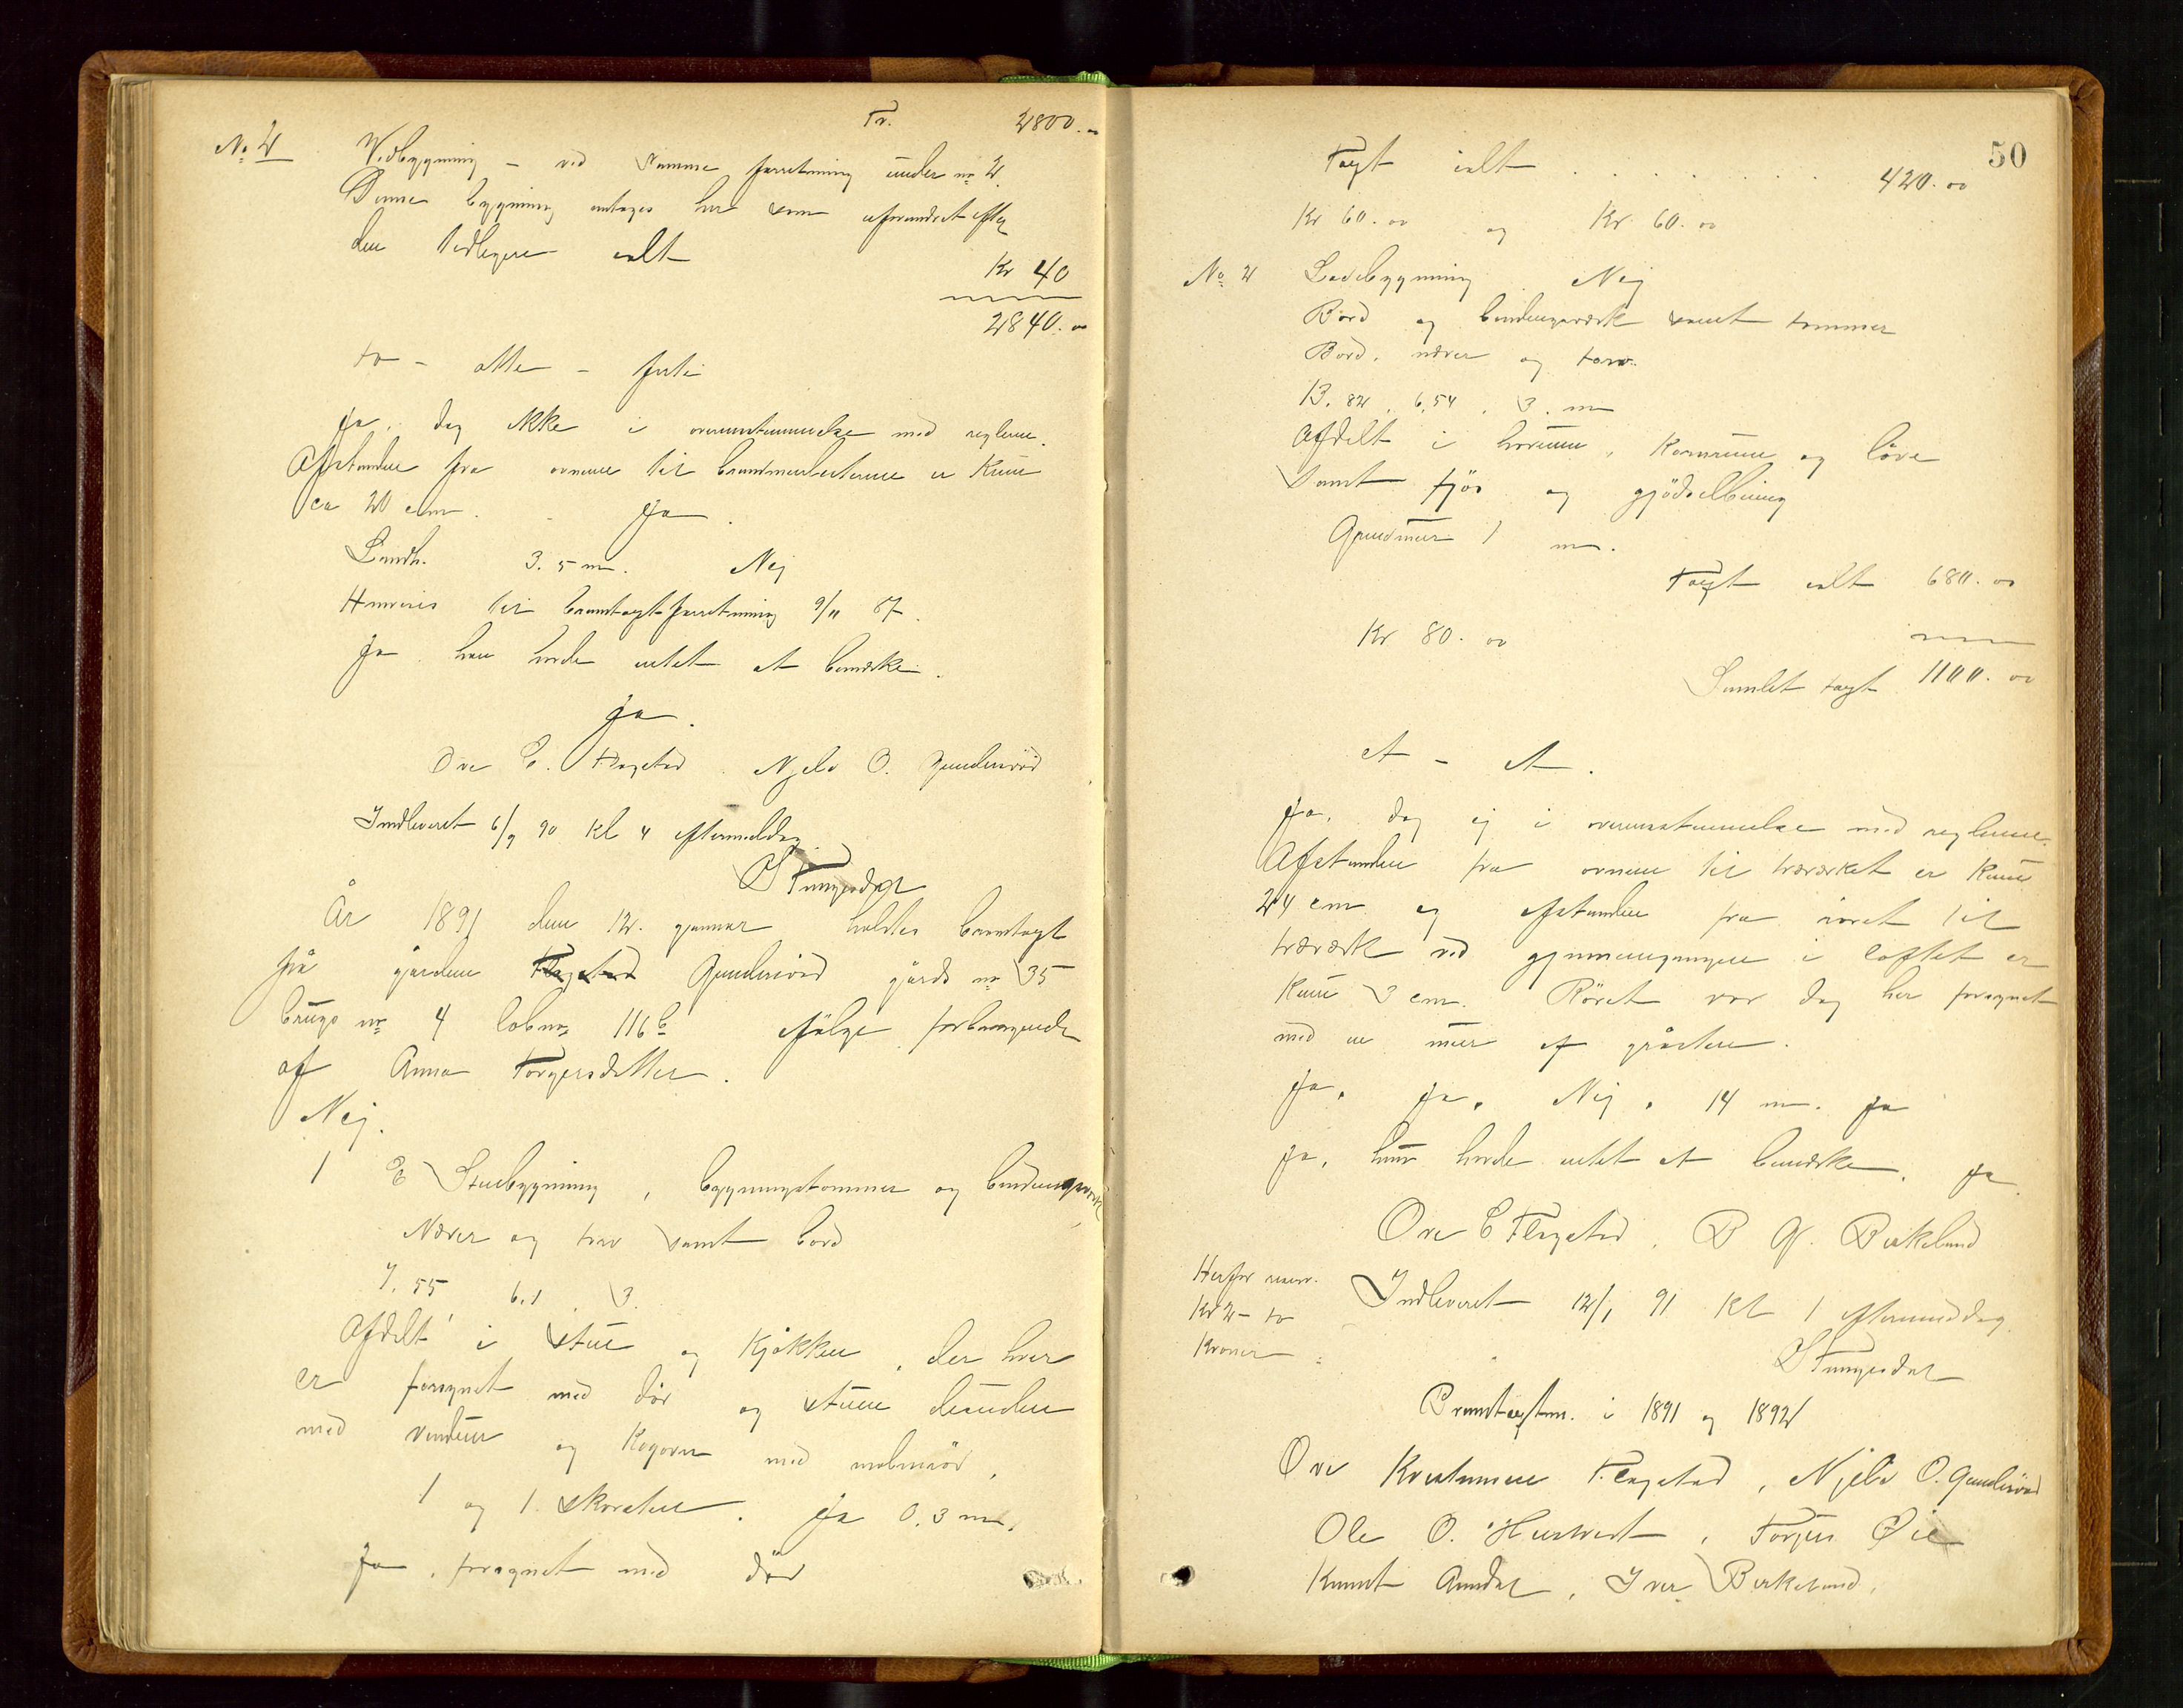 Tr. 2800.-
No 2 Vedbygning - ved samme forretning under no 2.
Denne bygning antages her som uforandret efter
den tidligere ialt
Kr 40
2840.00
to - otte - firti
Ja, dog ikke i overensstemmelse med reglerne.
Afstanden fra ovnene til brandmurbesterne er kun
ca 20 cm. Ja.
Landh. 3.5 m. Nej
Henvises til brandtagstforretning 9/11 87.
Ja han havde intet at bemærke.
Ja.
Ove E. Flagstad Njeld O. Gundersröd
Indleveret 6/9 90 kl 4 eftermiddag
S Tungesdal
År 1891 den 12. januar holdtes brandtagst
på gården Flagstad Gundersröd gårds no 35
brugs no 4 löbno 116b ifølge forlangende
af Anna Torgersdatter.
Nej.
1 E Stuebygning, bygningstømmer og bindingsværk
Næver og torv samt bord
7.55 6.1 3.
Afdelt i stue og kjøkken, der hver
er forsynet med dør og stuen desuden
med vinduer og kogovn med malmrör,
1 og 1 skorsten. Ja 0.3 m.
Ja, forsynet med dør
50
Tagst ialt . . . . . . . 420.00
Kr 60.00 og Kr 60.00
No 2 Ladebygning Nej
Bord og bindingsværk samt tømmer
Bord, næver og torv.
13.82, 6.54, 3. m
Afdelt i hörum, kornrum og låve
samt fjös og gjödselbinng
Grundmur 1 m.
Tagst ialt 680.00
Kr 80.00
Samlet tagst 1100.00
et - et.
Ja, dog ej i overensstemmelse med reglerne.
Afstanden fra ovnene til træværket er kun
24 cm og afstanden fra röret til
træværk ved gjennemgangen i loftet er
kun 3 cm. Röret var dog her forsynet
med en mur af gråsten.
Ja, Ja, Nej, 14 m. Ja
Ja, hun havde intet at bemærke. Ja.
Ove E Flagstad, B G. Birkeland
Herfor
Kr 2 - to
kroner
Indleveret 12/1 91 kl 1 eftermiddag.
S Tungesdal
Brandtagstm. i 1891 og 1892
Ove Kristensen Flagstad, Njeld O. Gundersröd
Ole O. Hustveit, Torger Øie
Knut Amdal, Iver Birkeland.